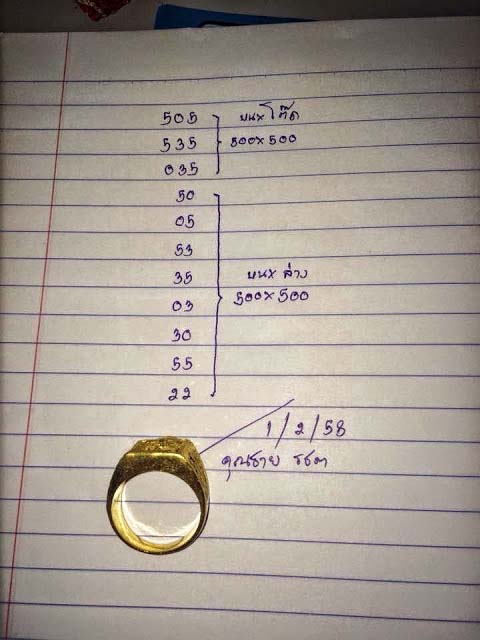 505 บน x โต๊ด
535 500 x 500
035
50
05
53
35 บน x ล่าง
03 500 x 500
30
55
22
1/2/58
คุณชาย รชต